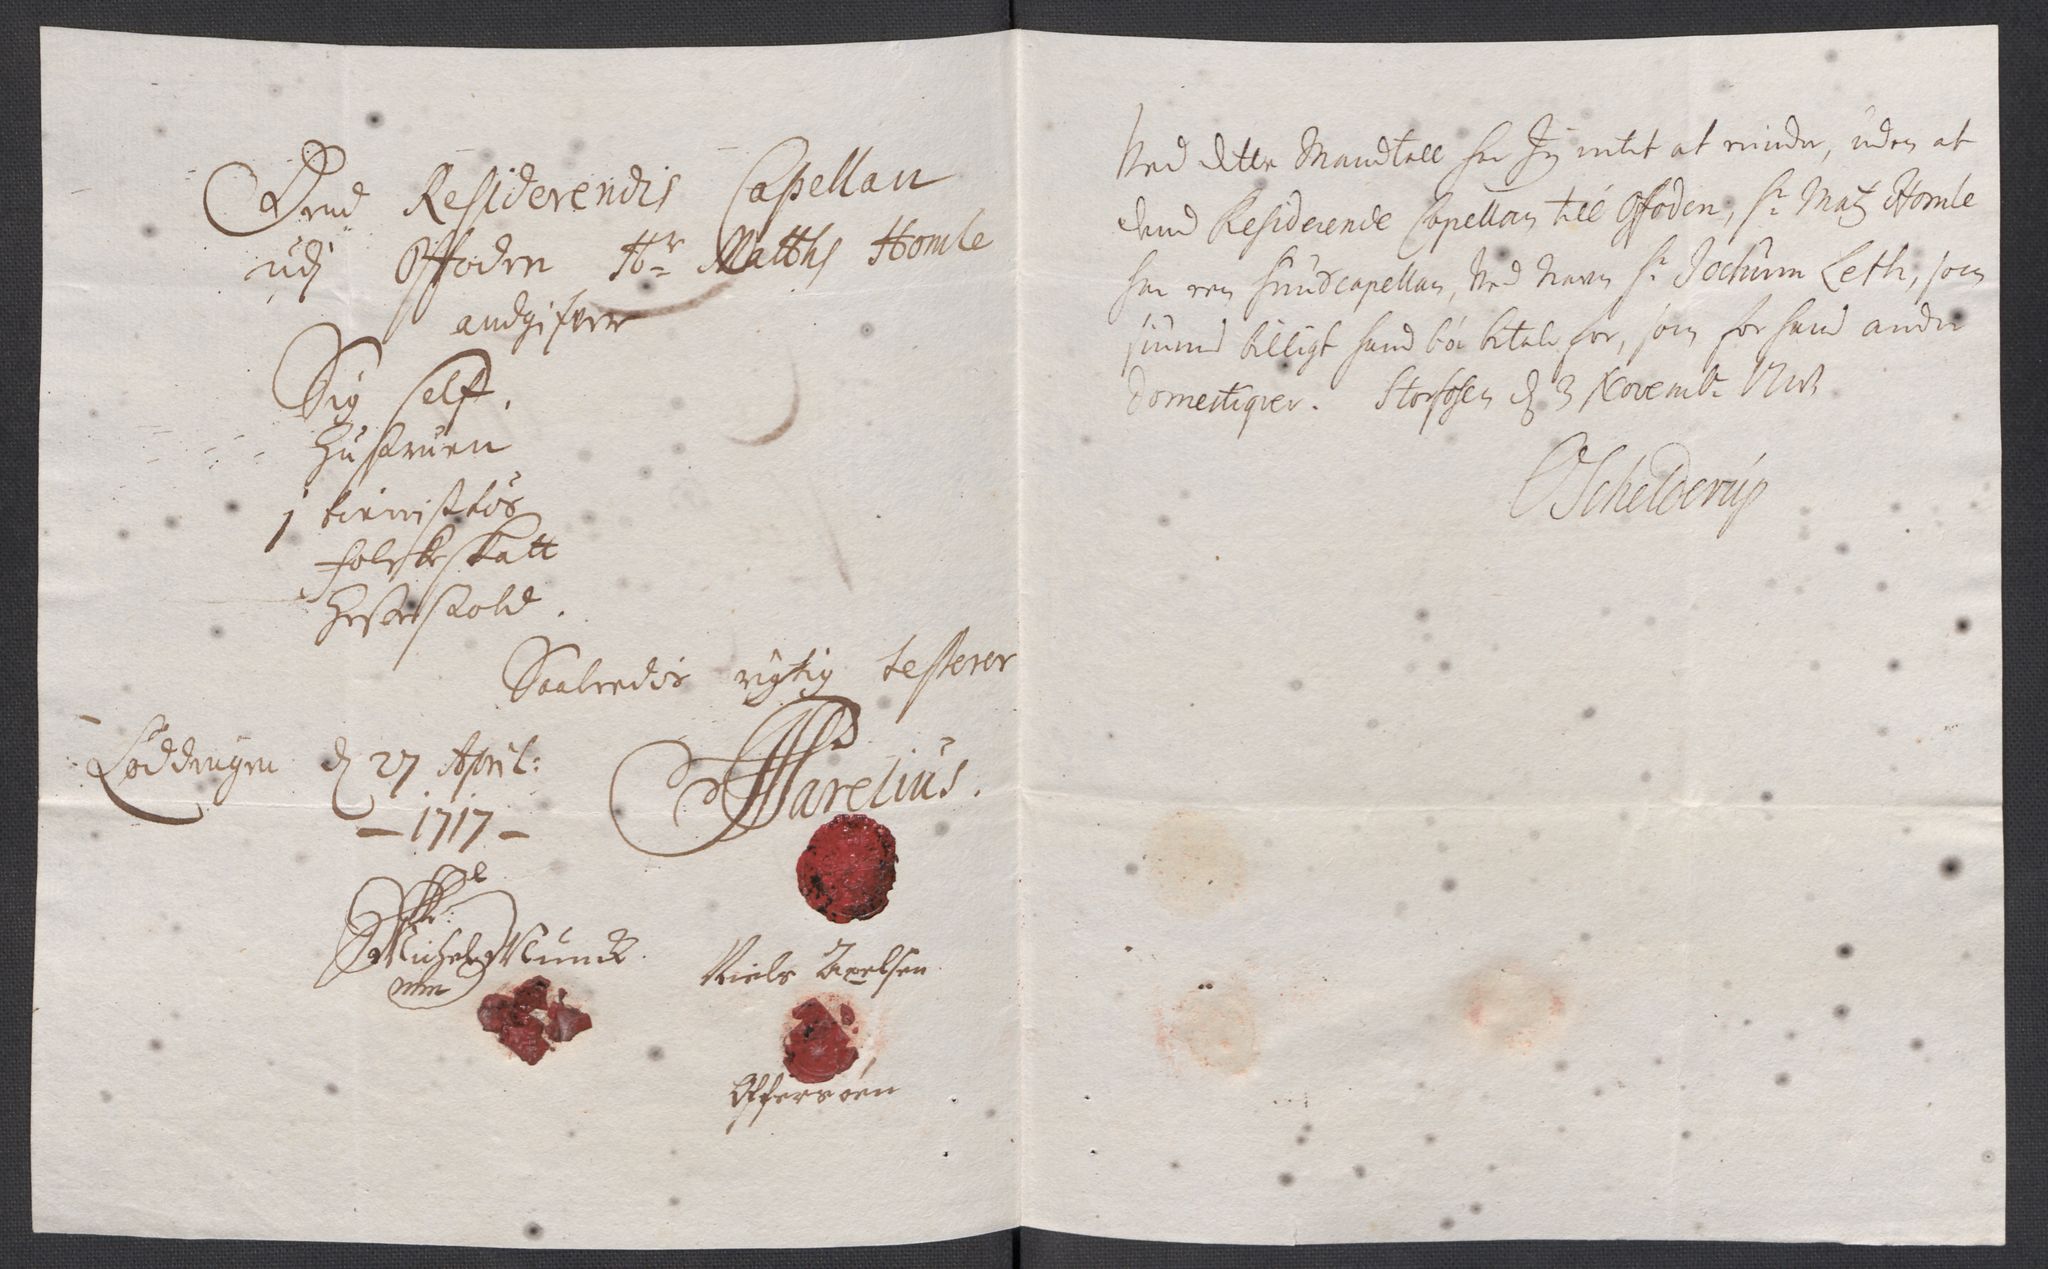 Dend Residerendis Capellan
udj Offoden Hr Matths Homle
andgifver
Sig self.
Hustruen
1 tienistös
folcke skatt
Heste skold.
Saaledis rigtig testerer
Løddingen d 27 April:
- 1717 -
Harelius.
Michel Munck
mm
Niels Axelsen
Offersøen
Ved dette Mandtall har Jeg intet at minde, uden at
dend Residerende Capellan till Offoden, Hr Matz Homle
har en huuscapellan, ved navn Hr Jochum Leth, som
siunis billigt hand bør betale for, som for hans andre
domestiqver. Storfosen d 3 Novembr
OSchelderup